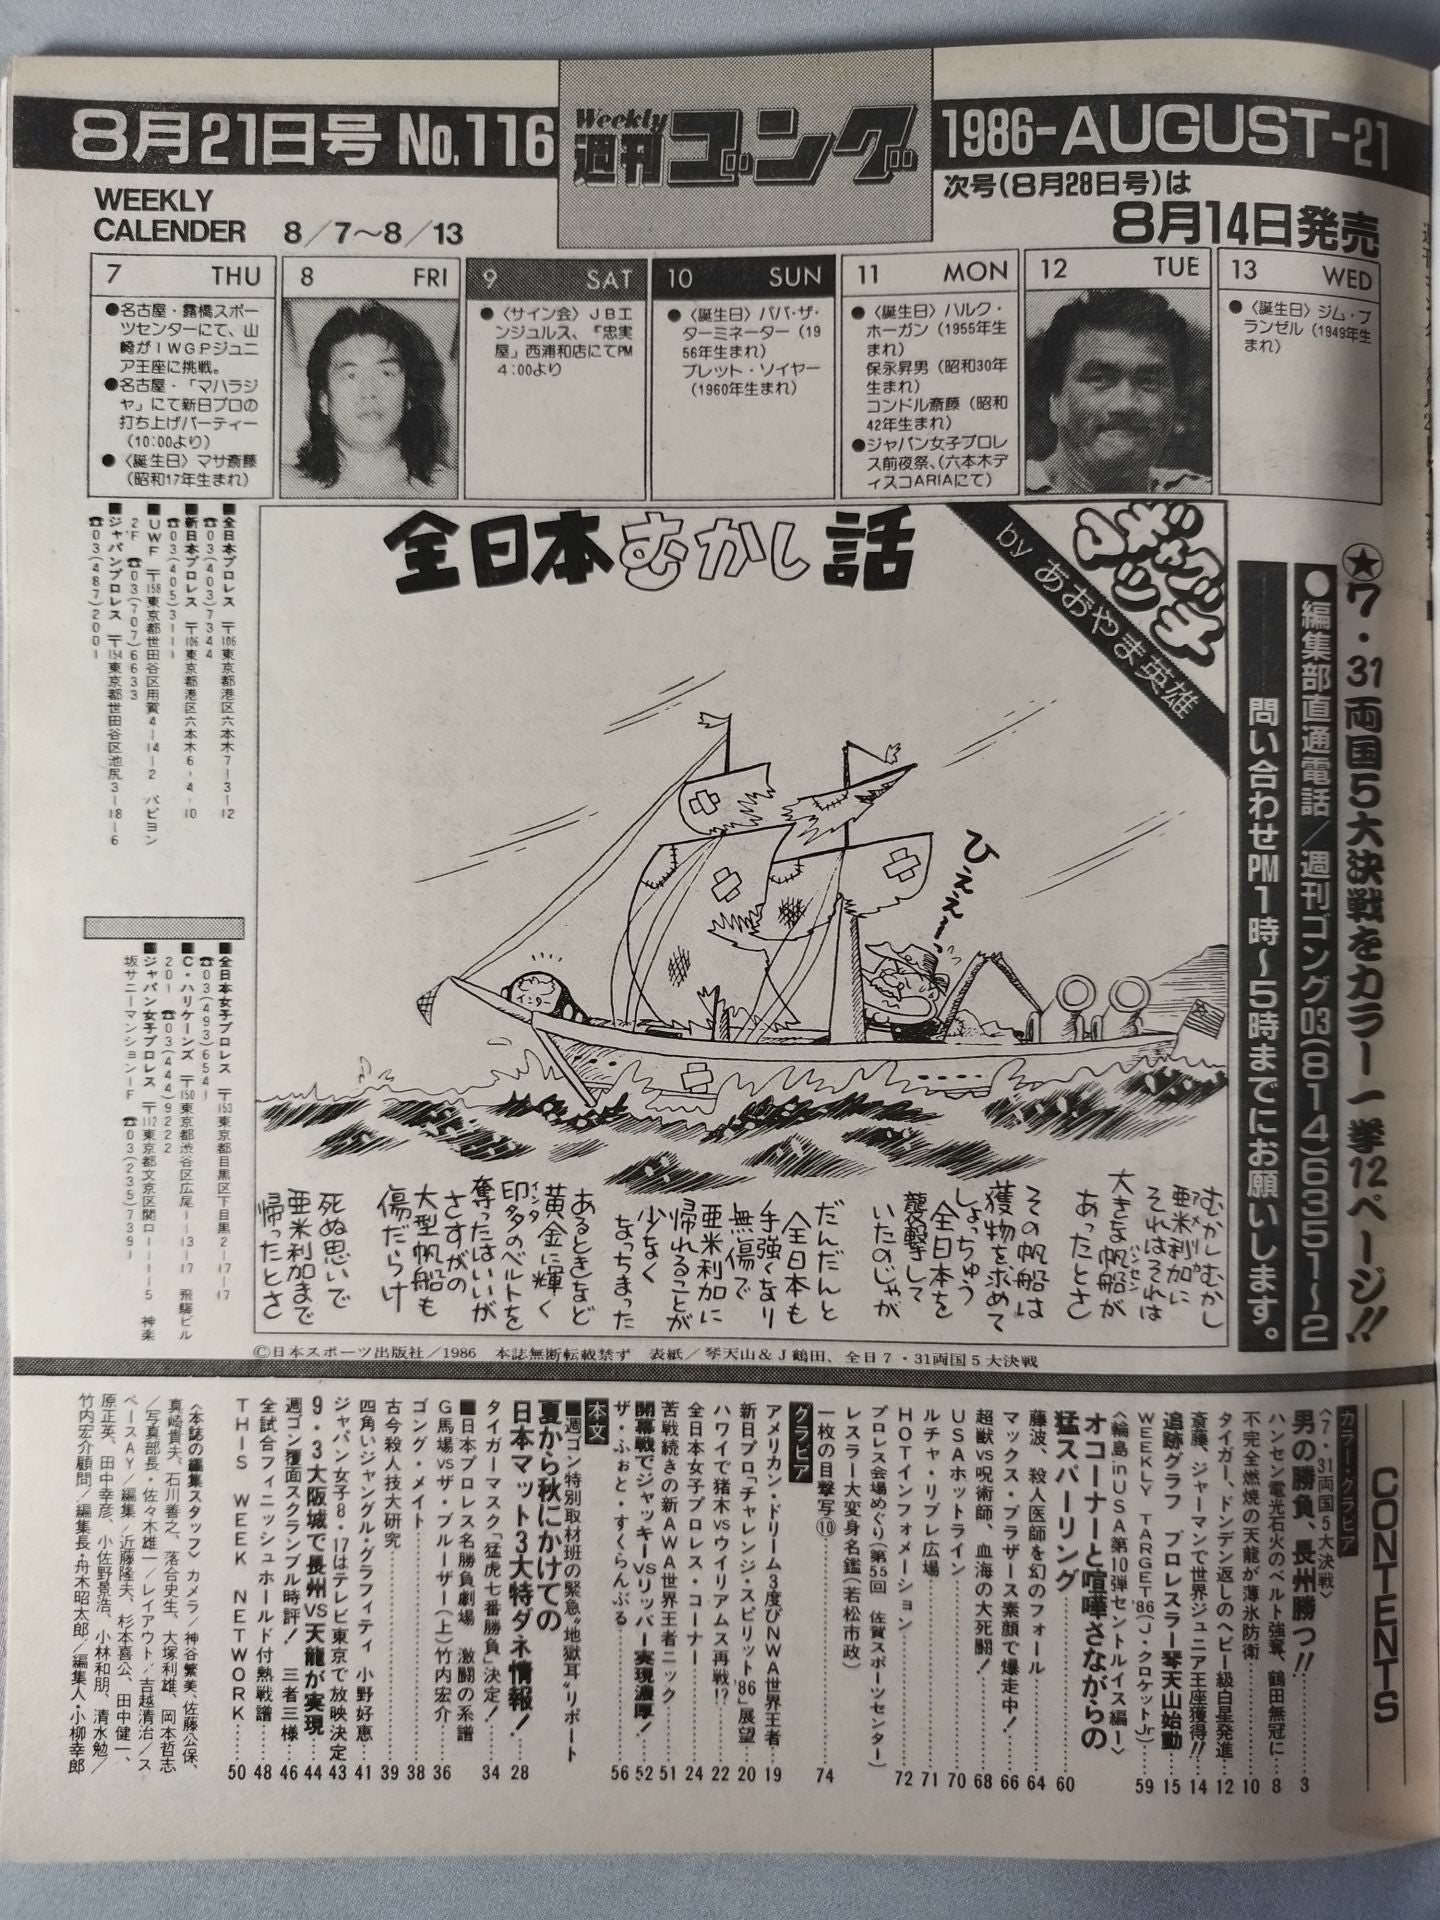 8月21日号 No.116
Weekly
週刊ゴング
1986-AUGUST-21
次号(8月28日号)は
8月14日発売
WEEKLY
CALENDER 8／7〜8／13
7 THU
●名古屋・露橋スポー
ツセンターにて、山
崎がIWGPジュニ
ア王座に挑戦。
●名古屋・「マハラジ
ャ」にて新日プロの
打ち上げパーティー
(10:00より)
●〈誕生日〉マサ斎藤
(昭和17年生まれ)
8 FRI
9 SAT
●〈サイン会〉JBエ
ンジュルス、「忠実
屋」西浦和店にてPM
4:00より
10 SUN
●〈誕生日〉ババ・ザ・
ターミネーター(19
56年生まれ)
ブレット・ソイヤー
(1960年生まれ)
11 MON
●〈誕生日〉ハルク・
ホーガン(1955年生
まれ)
保永昇男(昭和30年
生まれ)
コンドル斎藤(昭和
42年生まれ)
●ジャパン女子プロレ
ス前夜祭、(六本木デ
ィスコARIAにて)
12 TUE
13 WED
●〈誕生日〉ジム・ブ
ランゼル(1949年生
まれ)
★7・31両国5大決戦をカラー一挙12ページ!!
●編集部直通電話／週刊ゴング03(814)6351〜2
問い合わせPM1時〜5時までにお願いします。
ギャグマッチ
by あおやま英雄
全日本むかし話
ひえぇ〜っ
インター
むかしむかし
亜米利加に
アメリカ
それはそれは
大きな帆船が
ハンセン
あったとさ
その帆船は
獲物を求めて
しょっちゅう
全日本を
襲撃して
いたのじゃが
だんだんと
全日本も
手強くなり
無傷で
亜米利加に
帰れることが
少なく
なっちまった
あるときなど
黄金に輝く
印タのベルトを
インタ
奪ったはいいが
さすがの
大型帆船も
傷だらけ
死ぬ思いで
亜米利加まで
帰ったとさ
■全日本プロレス 〒106東京都港区六本木7-3-12
☎03(403)7344
■新日本プロレス 〒106東京都港区六本木6-4-10
☎03(405)3111
■UWF 〒158東京都世田谷区用賀4-14-2 パビヨン
2F ☎03(707)6633
■ジャパンプロレス 〒154東京都世田谷区池尻3-18-6
☎03(487)2001
■全日本女子プロレス 〒153東京都目黒区下目黒2-17-17
☎03(493)6541
■C・ハリケーンズ 〒150東京都渋谷区広尾1-13-17 飛騨ビル
201 ☎03(444)9222
■ジャパン女子プロレス 〒112東京都文京区関口1-1-5 神楽
坂サニーマンション1F ☎03(235)7391
©日本スポーツ出版社／1986 本誌無断転載禁ず 表紙／琴天山&J鶴田、全日7・31両国5大決戦
CONTENTS
カラーグラビア
〈7・31両国5大決戦〉
男の勝負、長州勝つ!!……3
ハンセン電光石火のベルト強奪、鶴田無冠に…8
不完全燃焼の天龍が薄氷防衛……10
タイガー、ドンデン返しのヘビー級白星発進…12
斎藤、ジャーマンで世界ジュニア王座獲得!!…14
追跡グラフ プロレスラー琴天山始動…15
WEEKLY TARGET'86(J・クロケットJr)…59
〈輪島inUSA第10弾セントルイス編ー〉
オコーナーと喧嘩さながらの
猛スパーリング……60
藤波、殺人医師を幻のフォール……64
マックス・ブラザース素顔で爆走中!……66
超獣VS呪術師、血海の大死闘!……68
USAホットライン……70
ルチャ・リブレ広場……71
HOTインフォメーション……72
プロレス会場めぐり(第55回 佐賀スポーツセンター)
レスラー大変身名鑑(若松市政)
一枚の目撃写⑩……74
グラビア
アメリカン・ドリーム3度びNWA世界王者…19
新日プロ「チャレンジ・スピリット'86」展望……20
ハワイで猪木VSウイリアムス再戦!?……22
全日本女子プロレス・コーナー……24
苦戦続きの新AWA世界王者ニック……51
開幕戦でジャッキーVSリッパー実現濃厚!…52
ザ・ふぉと・すくらんぶる……56
本文
■週ゴン特別取材班の緊急“地獄耳”リポート
夏から秋にかけての
日本マット3大特ダネ情報!……28
タイガーマスク「猛虎七番勝負」決定!……34
■日本プロレス名勝負劇場 激闘の系譜
G馬場VSザ・ブルーザー(上)竹内宏介……36
ゴング・メイト……38
古今殺人技大研究……39
四角いジャングル・グラフィティ 小野好恵…41
ジャパン女子8・17はテレビ東京で放映決定…43
9・3大阪城で長州VS天龍が実現…44
週ゴン覆面スクランブル時評! 三者三様…46
全試合フィニッシュホールド付熱戦譜……48
THIS WEEK NETWORK……50
〈本誌の編集スタッフ〉カメラ／神谷繁美、佐藤公保、
真崎貴夫、石川善之、落合史生、大塚利雄、岡本哲志
／写真部長・佐々木雄一／レイアウト／吉越清治／ス
ペースAY／編集／近藤隆夫、杉本喜公、田中健一、
原正英、田中幸彦、小佐野景浩、小林和朋、清水勉／
竹内宏介顧問／編集長・舟木昭太郎／編集人・小柳幸郎